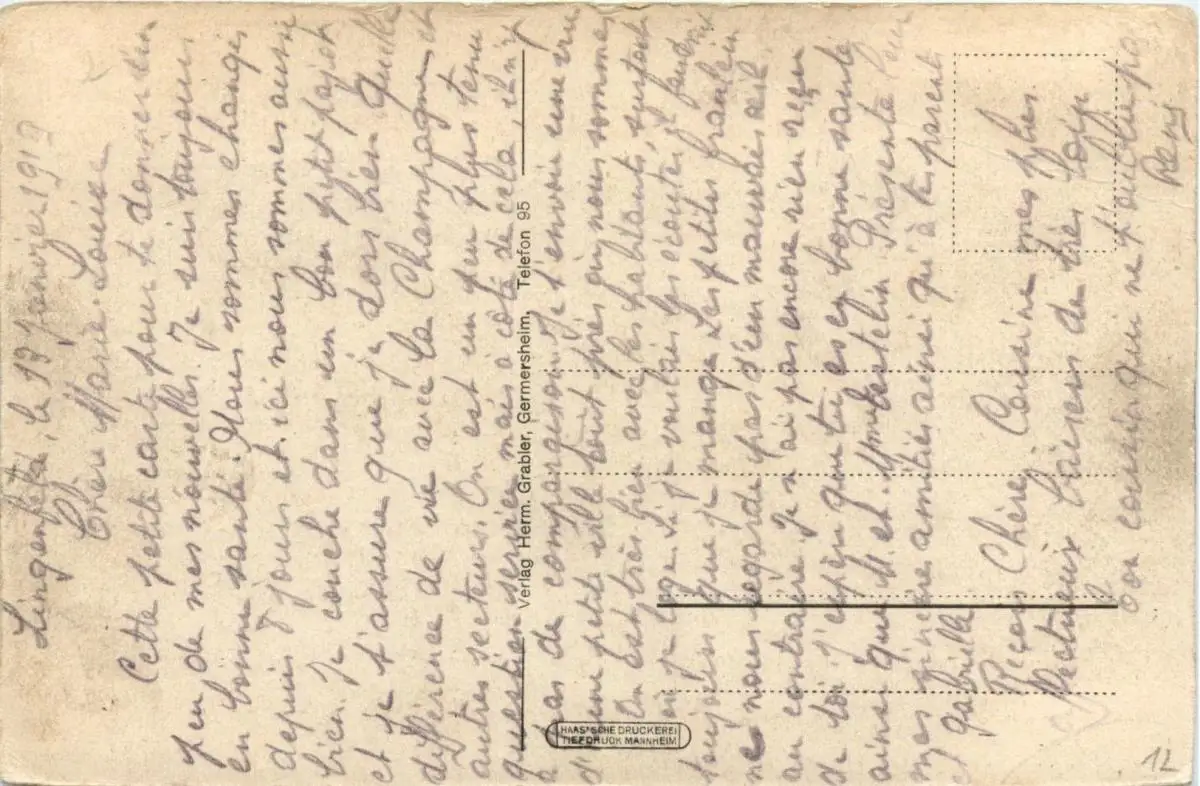 Lingenfeld, le 13 Janvier 1919
Chère Marie-Louise
Cette petite carte pour te donner un
peu de mes nouvelles. Je suis toujours
en bonne santé. Nous sommes changés
depuis 4 jours et ici nous sommes aussi
bien. Je couche dans un bon petit pajot
et je t'assure que je dors bien. Quelle
différence de vie avec la Champagne et
autres secteurs. On est un peu plus tenu
question service mais à coté de cela, il n'y
a pas de comparaison. Je t'envoie une vue
d'une petite ville tout près où nous sommes
On est très bien avec les habitants, surtout
où je loge. Si je voulais les écouter, il faudrait
toujours que je mange. Les petites fraulein
ne nous regarde pas d'un mauvais œil
au contraire. Je n'ai pas encore rien reçu
de toi. J'espère que tu es en bonne santé
ainsi que M. et Mme Présente leur
mes sincère amitiés ainsi qu'à tes parents
et Gabrielle.
Reçois Chère Cousine mes plus
affectueux baisers du très loin
Ton cousin qui ne t'oublie pas
René
Verlag Herm. Grabler, Germersheim, Telefon 95
HAAS'SCHE DRUCKEREI
TIEFDRUCK MANNHEIM
12